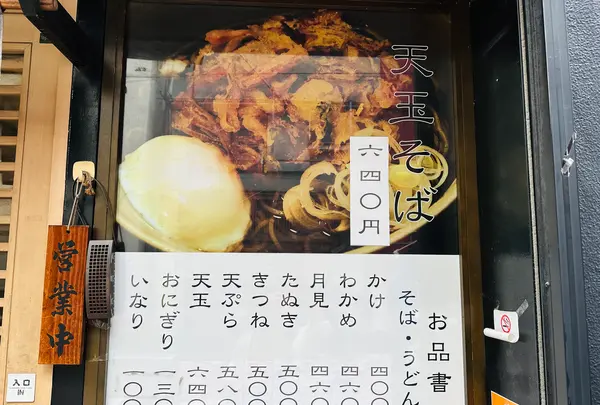 天玉そば
六四〇円
お品書
そば・うどん
かけ 四〇〇
わかめ 四六〇
月見 四六〇
たぬき 五〇〇
きつね 五〇〇
天ぷら 五八〇
天玉 六四〇
おにぎり 一三〇
いなり 一〇〇
営業中
入口
IN